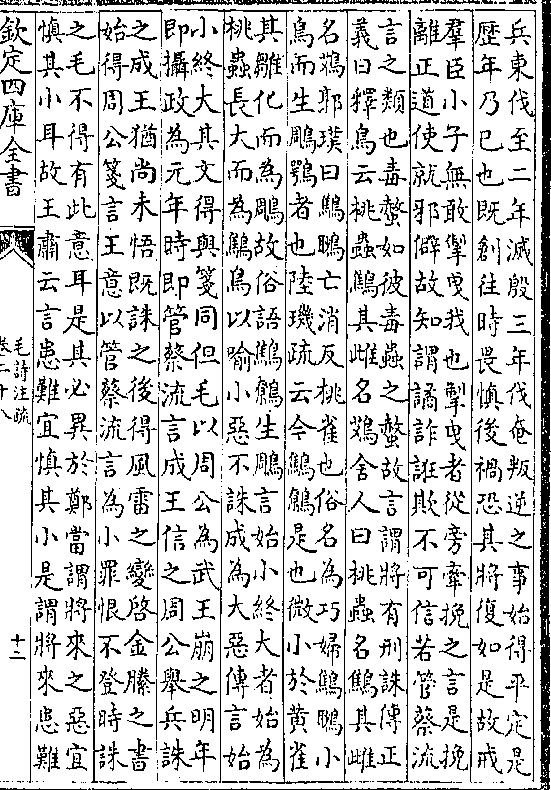 兵東伐至二年滅殷三年伐奄叛逆之事始得平定是
歷年乃已也既創往時畏慎後禍恐其將復如是故戒
羣臣小子無敢掣曳我也掣曳者從旁牽挽之言是挽
離正道使就邪僻故知謂譎詐誑欺不可信若管蔡流
言之類也毒螫如彼毒蟲之螫故言謂將有刑誅傳正
義曰釋鳥云桃蟲鷦其雌名鴱舍人曰桃蟲名鷦其雌
名鴱郭璞曰鷦䳟亡消反桃雀也俗名為巧婦鷦䳟小
鳥而生鵰鶚者也陸璣疏云今鷦鷯是也微小於黃雀
其雛化而為鵰故俗語鷦鷯生鵰言始小終大者始為
桃蟲長大而為鷦鳥以喻小惡不誅成為大惡傳言始
小終大其文得與箋同但毛以周公為武王崩之明年
即攝政為元年時即管蔡流言成王信之周公舉兵誅
之成王猶尚未悟既誅之後得風雷之變啓金縢之書
始得周公箋言王意以管蔡流言為小罪恨不登時誅
之毛不得有此意耳是其必異於鄭當謂將來之惡宜
慎其小耳故王肅云言患難宜慎其小是謂將來患難
欽定四庫全書
毛詩注疏
卷二十八
十二